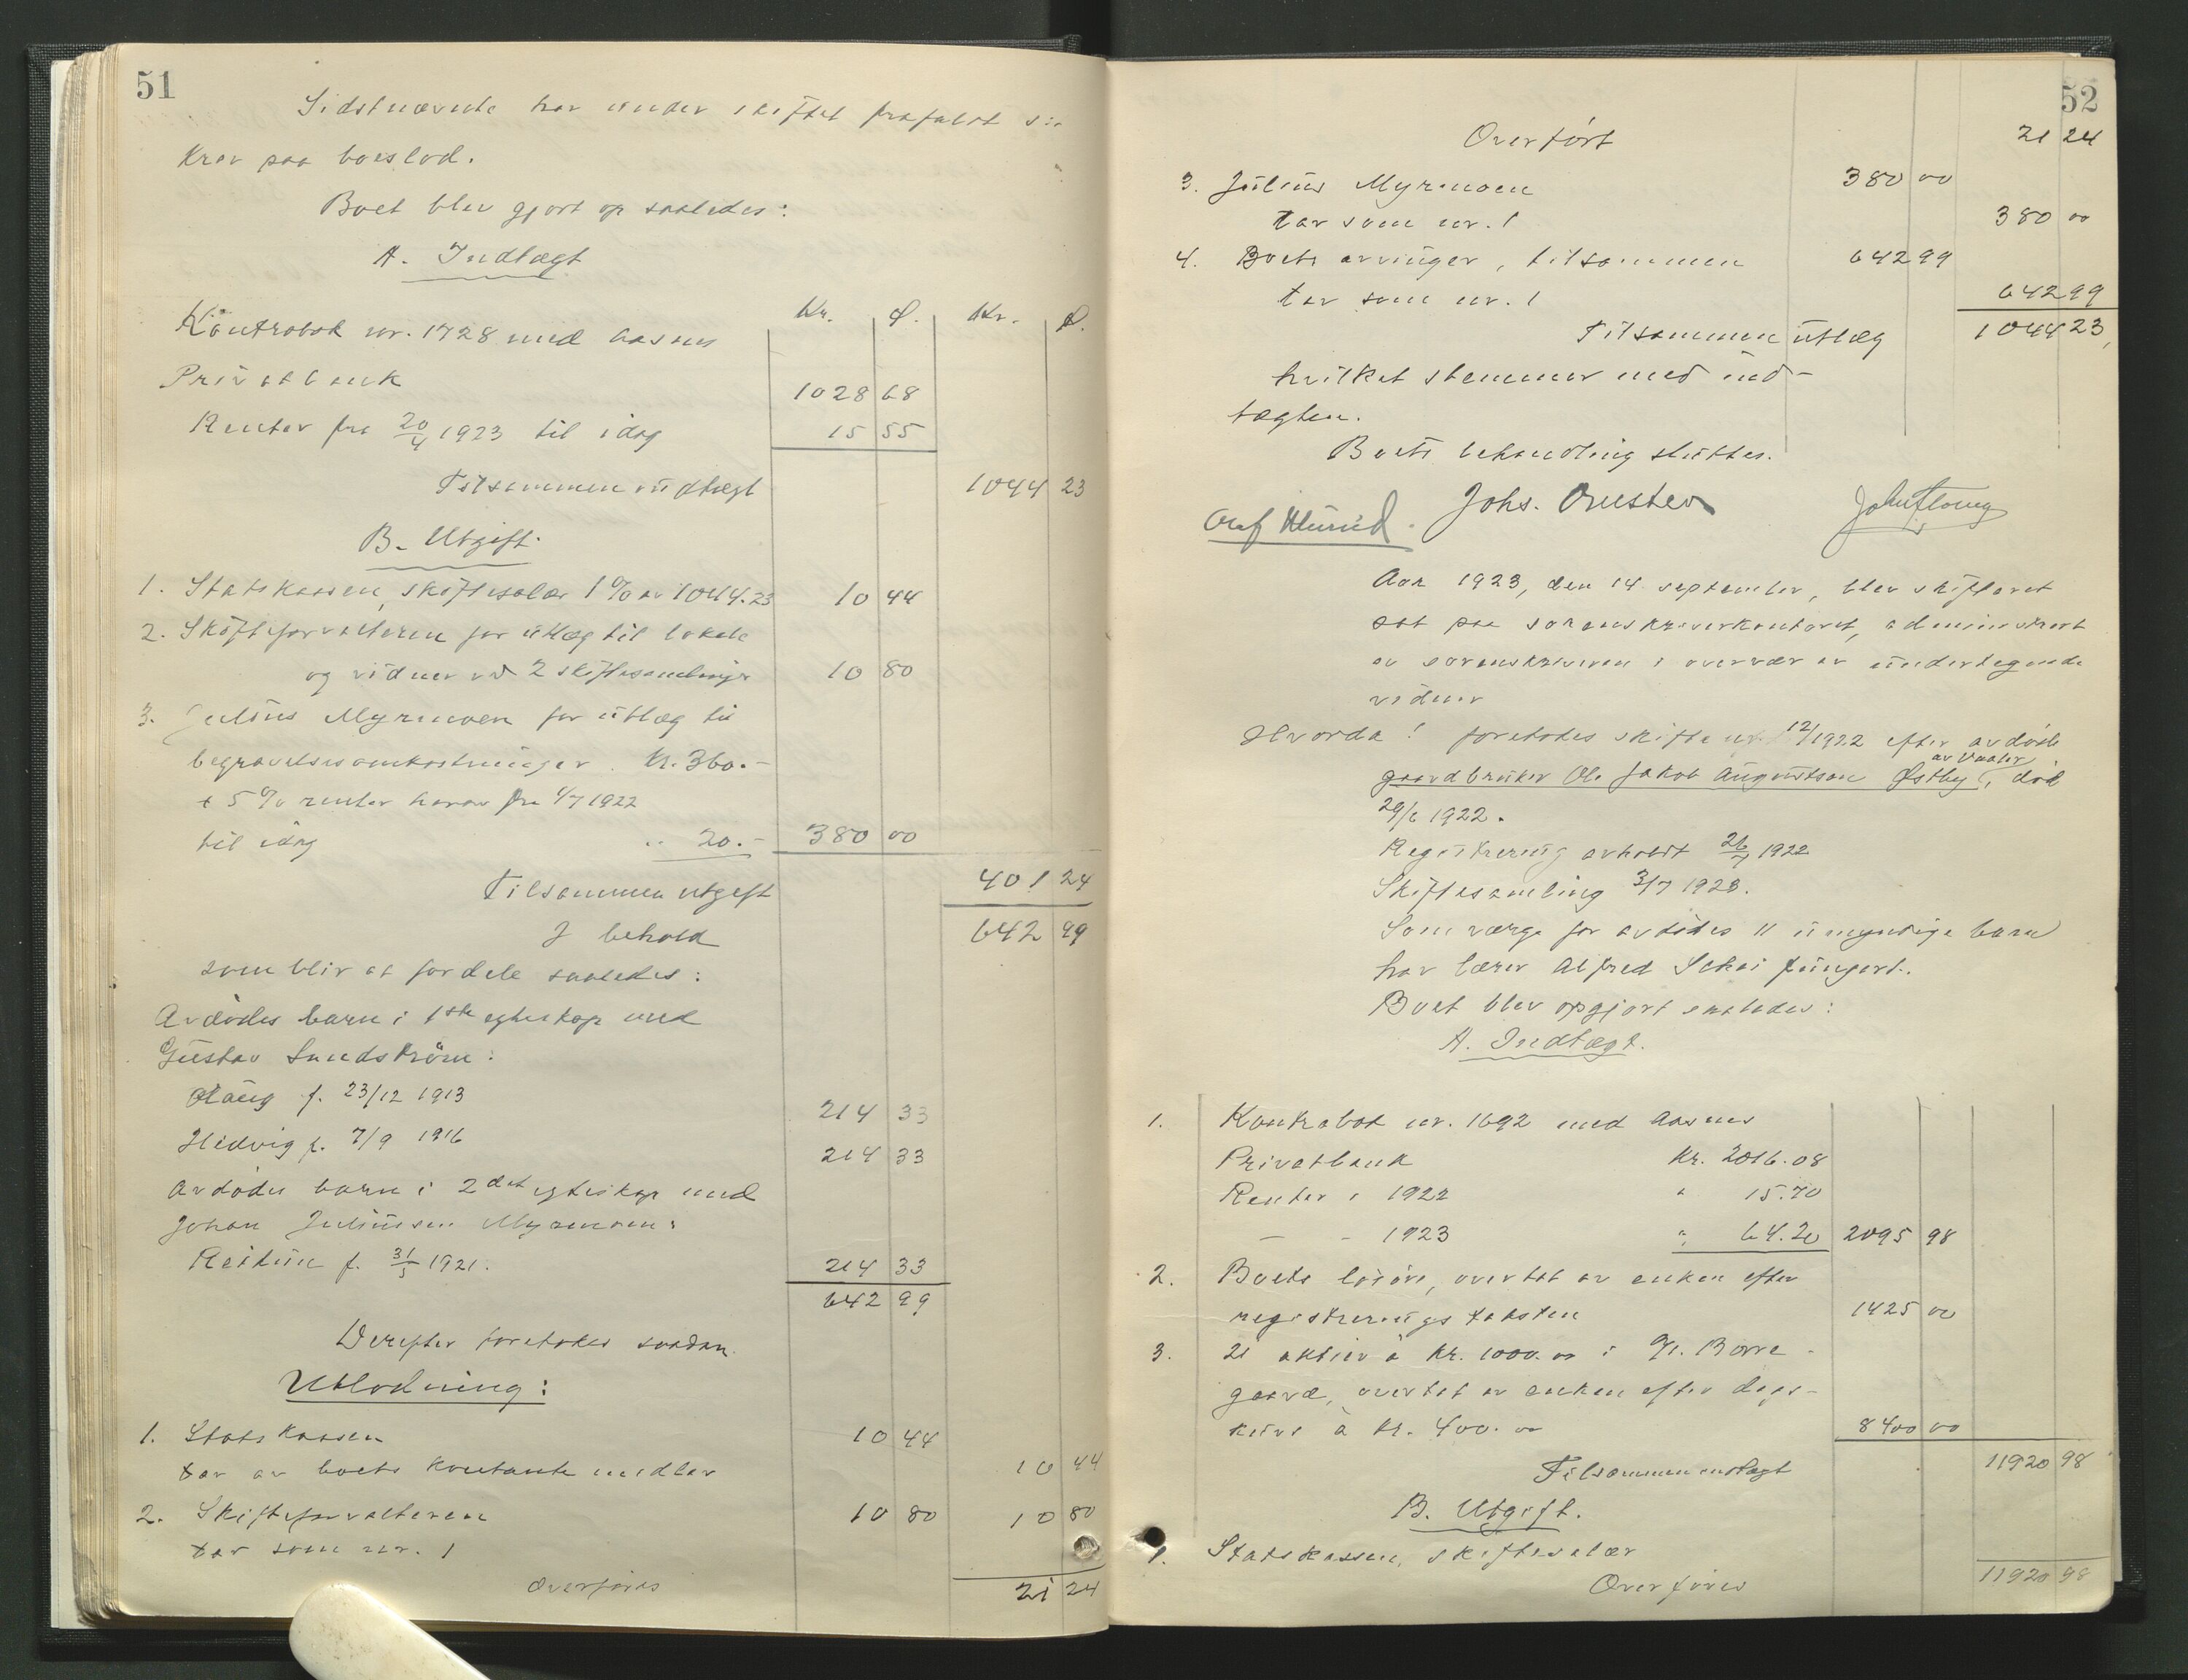 51
Sidstnævnte har under skiftet frafaldt sin
krav paa boeslod.
Boet blev gjort op saaledes:
A. Indtægt
Kr. Ø. Kr. Ø.
Kontrabok nr. 1728 med Aasnes
Privatbank 1028 68
Renter fra 20/4 1923 til idag 15 55
Tilsammen indtægt 1044 23
B. Utgift.
1. Statskassen, skiftesalær 1% av 1044.23 10 44
2. Skifteforvalteren for utlæg til lokale
og vidner ved 2 skiftesamlinger 10 80
3. Julius Myrmoen for utlæg til
begravelsesomkostninger. Kr. 360.-
+ 5% renter herav fra 4/7 1922
til idag " 20.- 380 00
Tilsammen utgift 401 24
I behold 642 99
som blir at fordele saaledes:
Avdødes barn i 1ste egteskap med
Gustav Sundström:
Haug f. 23/12 1913 214 33
Hedvig f. 7/9 1916 214 33
Avdødes barn i 2det egteskap med
Johan Juliussen Myrmoen:
f. 31/5 1921. 214 33
642 99
Derefter foretokes saadan
Utlodning:
1. Statskassen 10 44
tar av boets kontante midler 10 44
2. Skifteforvalteren 10 80 10 80
tar som nr. 1
Overføres 21 24
52
Overført 21 24
3. Julius Myrmoen 380 00
tar som nr. 1 380 00
4. Boets arvinger, tilsammen 642 99
tar som nr. 1 642 99
Tilsammen utlæg 1044 23,
hvilket stemmer med ind-
tægten.
Boets behandling sluttes.
Olaf Johs.
Aar 1923, den 14 september, blev skifteret
sat paa sorenskriverkontoret, administrert
av sorenskriveren i overvær av undertegnede
vidner
Hvorda! foretokes skifte nr. 12/1922 efter avdøde
gaardbruker Ole Jakob Augustson Østby av Vaaler, død
29/6 1922.
Registrering avholdt 26/7 1922
Skiftesamling 3/7 1923.
Som værge for avdødes 11 umyndige barn
har lærer Alfred fungert.
Boet blev opgjort saaledes:
A. Indtægt.
1. Kontrabok nr. 1692 med Aasnes
Privatbank Kr. 2016.08
Renter i 1922 " 15.70
— - 1923 " 64.20 2095 98
2. Boets løsøre, overtat av enken efter
registreringstaksten 1425 00
3. 21 aktier à kr. 1000.00 i A/S. Borre-
gaard, overtat av enken efter dags-
kurs à kr. 400.00 8400 00
Tilsammen indtægt 11920 98
B. Utgift.
1. Statskassen, skiftesalær
Overføres 11920 98